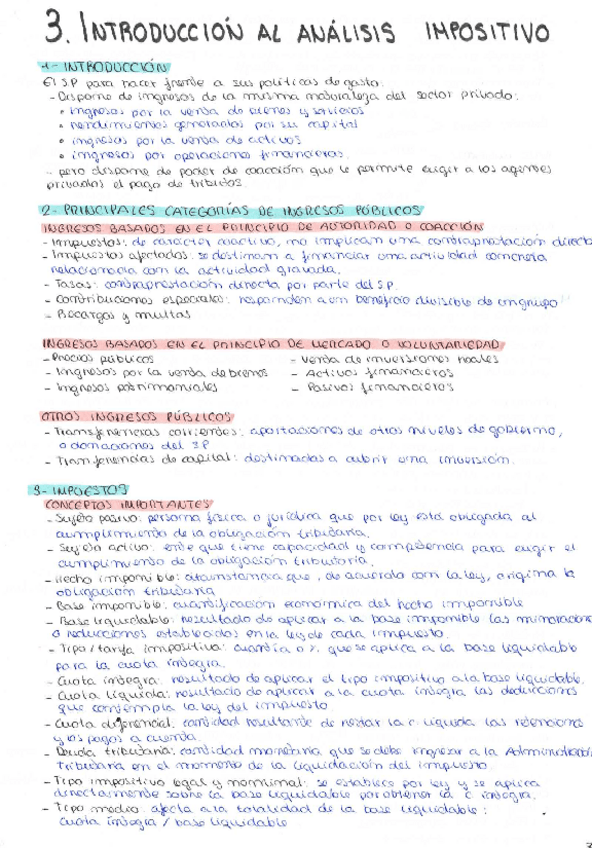 3. INTRODUCCIÓN AL ANÁLISIS IMPOSITIVO
1- INTRODUCCIÓN
El S.P para hacer frente a sus políticas de gasto:
- Dispone de ingresos de la misma naturaleza del sector privado:
• ingresos por la venta de bienes y servicios
• rendimientos generados por su capital
• ingresos por la venta de activos
• ingresos por operaciones financieras.
- pero dispone de poder de coacción que le permite exigir a los agentes
privados el pago de tributos
2- PRINCIPALES CATEGORÍAS DE INGRESOS PÚBLICOS
INGRESOS BASADOS EN EL PRINCIPIO DE AUTORIDAD O COACCIÓN
- Impuestos: de carácter coactivo, no implican una contraprestación direct
- Impuestos afectados: se destinan a financiar una actividad concreta
relacionada con la actividad gravada.
- Tasas: contraprestación directa por parte del S.P.
- Contribuciones especiales: responden a un beneficio divisible de un grupo
- Recargos y multas
INGRESOS BASADOS EN EL PRINCIPIO DE MERCADO O VOLUNTARIEDAD
- Precios públicos - Venta de inversiones reales
- Ingresos por la venta de bienes - Activos financieros
- Ingresos patrimoniales - Pasivos financieros
OTROS INGRESOS PÚBLICOS
- Transferencias corrientes: aportaciones de otros niveles de gobierno,
o donaciones del S.P
- Transferencias de capital: destinadas a cubrir una inversión.
3- IMPUESTOS
CONCEPTOS IMPORTANTES
- Sujeto pasivo: persona física o jurídica que por ley está obligada al
cumplimiento de la obligación tributaria.
- Sujeto activo: ente que tiene capacidad y competencia para exigir el
cumplimiento de la obligación tributaria.
- Hecho imponible: circunstancia que, de acuerdo con la ley, origina la
obligación tributaria
- Base imponible: cuantificación económica del hecho imponible
- Base liquidable: resultado de aplicar a la base imponible las minoracion
o reducciones establecidas en la ley de cada impuesto.
- Tipo/tarifa impositiva: cuantía o % que se aplica a la base liquidable
para la cuota íntegra.
- Cuota íntegra: resultado de aplicar el tipo impositivo a la base liquidable.
- Cuota líquida: resultado de aplicar a la cuota íntegra las deducciones
que contempla la ley del impuesto
- Cuota diferencial: cantidad resultante de restar la c. líquida las retenciones
y los pagos a cuenta.
- Deuda tributaria: cantidad monetaria que se debe ingresar a la Administración
Tributaria en el momento de la liquidación del impuesto.
- Tipo impositivo legal y nominal: se establece por ley y se aplica
directamente sobre la base liquidable por obtener la c. íntegra.
- Tipo medio: afecta a la totalidad de la base liquidable:
cuota íntegra / base liquidable
3